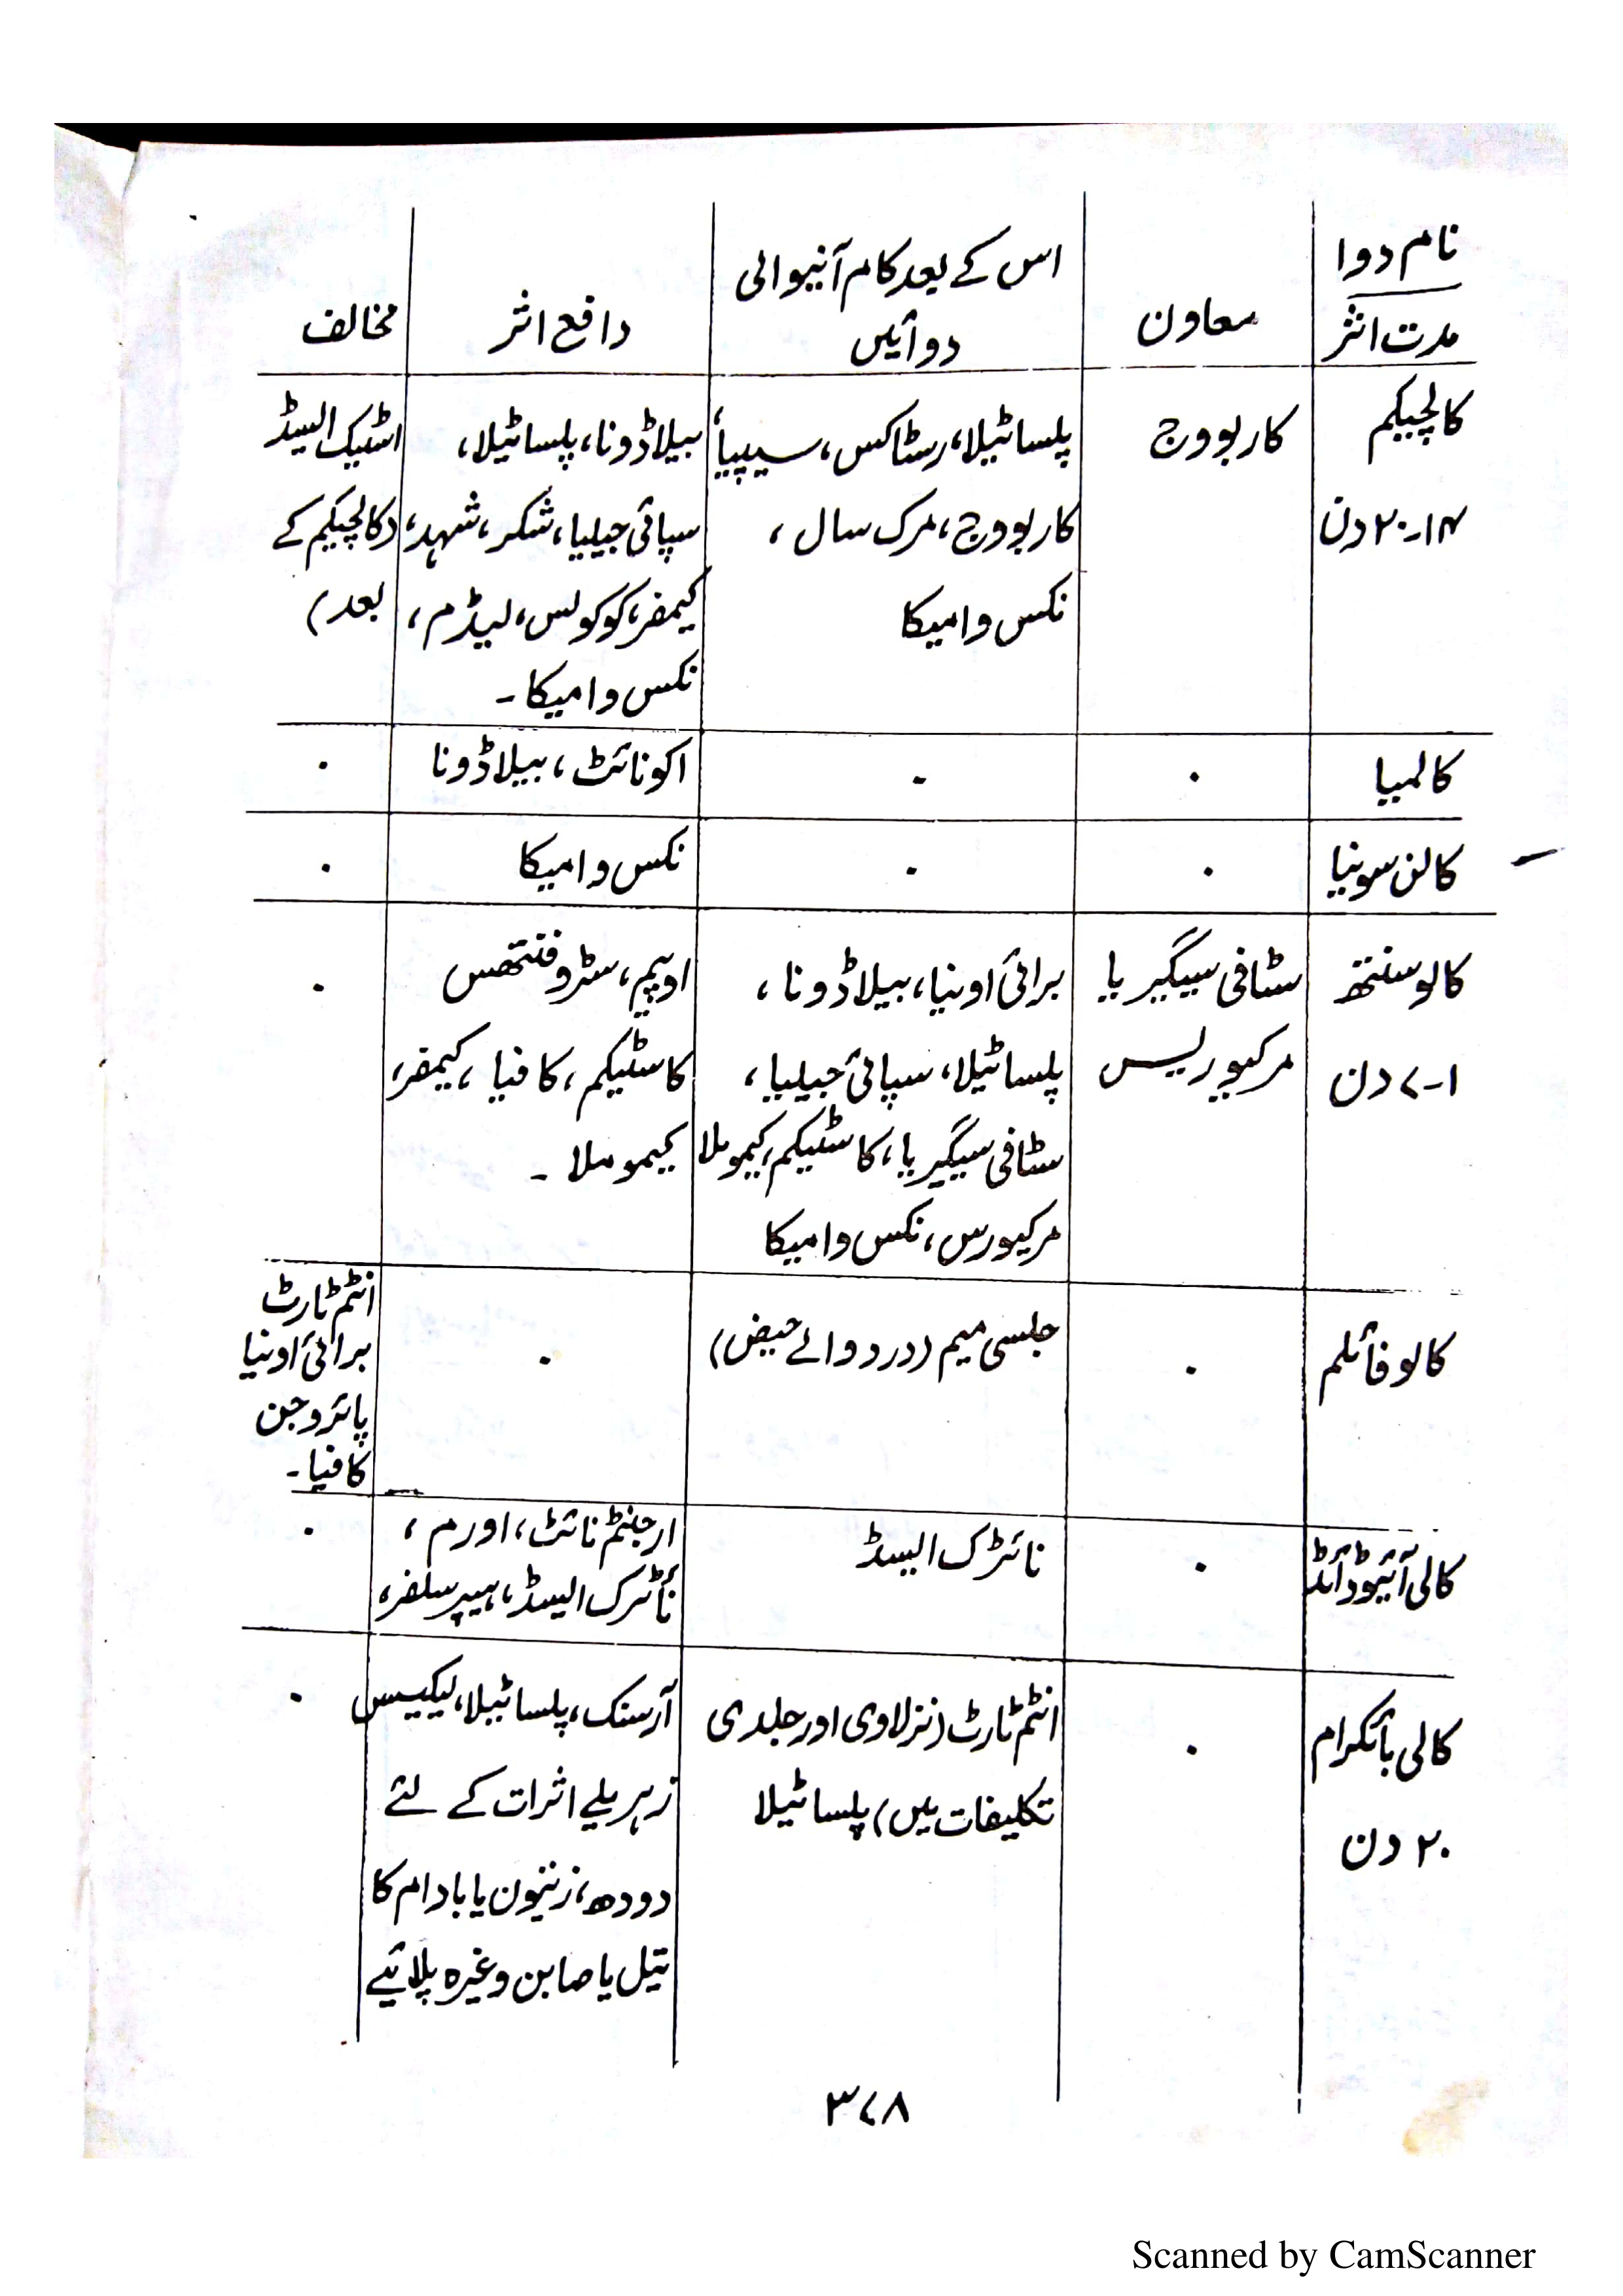 نام دوا
مدت اثر
معاون
اس کے بعد کام آنیوالی
دوائیں
دافع اثر
مخالف
کالچیکم
۱۴-۲۰ دن
کاربووج
پلساٹیلا، رسٹاکس، سیپیا،
کاربووج، مرک سال،
نکس وامیکا
بیلاڈونا، پلساٹیلا،
سپائی جیلیا، شکر، شہد،
کیمفر، کوکولس، لیڈم،
نکس وامیکا۔
اسٹیک ایسڈ
(کالچیکم کے
بعد)
کالمیا
۰
۰
اکونائٹ، بیلاڈونا
۰
کالن سونیا
۰
۰
نکس وامیکا
۰
کالوسنتھ
۱-۷ دن
سٹافی سیگیریا
مرکیوریس
برائی اونیا، بیلاڈونا،
پلساٹیلا، سپائی جیلیا،
سٹافی سیگیریا، کاسٹیکم، کیموملا
مرکیورس، نکس وامیکا
اوپیم، سٹروفنتھس
کاسٹیکم، کافیا، کیمفر،
کیموملا۔
۰
کالوفائلم
۰
جلسی میم (درد والے حیض)
۰
انٹم ٹارٹ
برائی اونیا
پائروجن
کافیا۔
کالی آئیوڈائڈ
۰
نائٹرک ایسڈ
ارجنٹم نائٹ، اورم،
نائٹرک ایسڈ، ہیپر سلفر،
۰
کالی بائکرام
۲۰ دن
۰
انٹم ٹارٹ (نزلاوی اور جلدی
تکلیفات میں) پلساٹیلا
آرسنک، پلساٹیلا، لیکیسس
زہریلے اثرات کے لئے
دودھ، زیتون یا بادام کا
تیل یا صابن وغیرہ پلائیے
۰
۳۷۸
Scanned by CamScanner